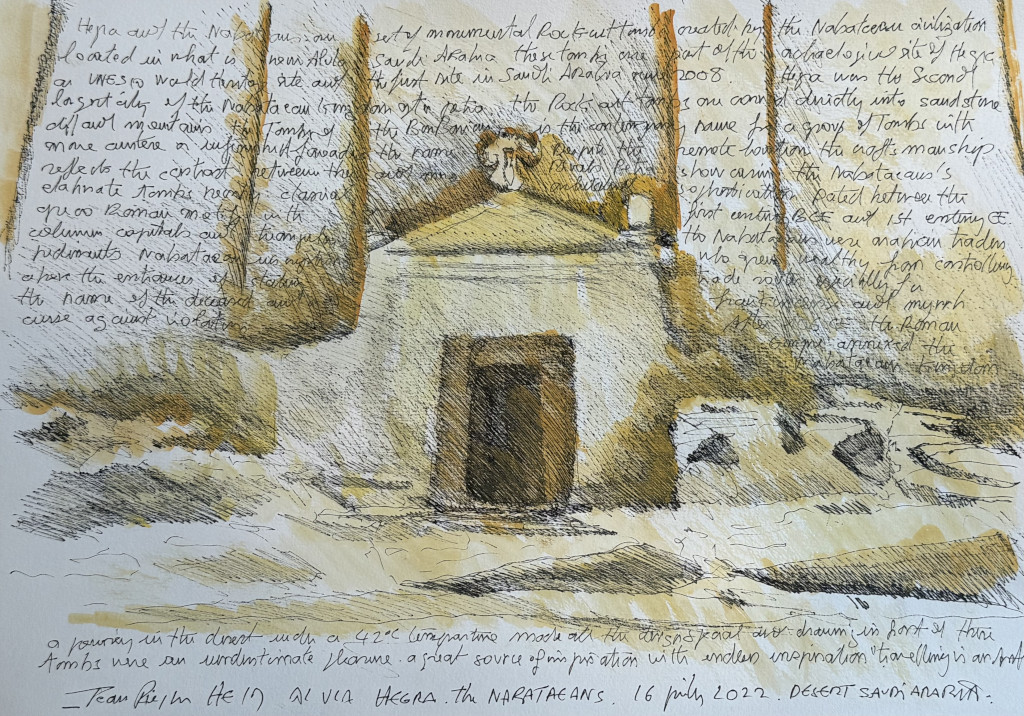 Hegra and the Nabataeans are set of monumental Rock-cut Tombs created by the Nabataean civilization
located in what is now AlUla Saudi Arabia these tombs are part of the archaeologic site of Hegra
an UNESCO World Heritage site and the first site in Saudi Arabia since 2008 Hegra was the Second
largest city of the Nabataean Kingdom after petra the Rock cut Tombs are carved directly into sandstone
cliff and mountains the Tombs of the is the contemporary name for a group of Tombs with
more austere or unfinished facades the name the remote location the craftsmanship
reflects the contrast between these and more show cases the Nabataeans's
elaborate Tombs nearby classical sophistication Dated between the
greco Roman motifs with first century BCE and 1st century CE
columns capitals and triangular the Nabataeans were arabian traders
pediments Nabataean inscriptions who grew wealthy from controlling
above the entrances trade routes especially for
the name of the deceased and frankincense and myrrh
curse against violators After CE the Roman
Empire annexed the
Nabataean Kingdom
a journey in the desert under a 42°C temperature made all the and drawing in front of these
Tombs were an pleasure. a great source of inspiration with endless inspiration "travelling is an art
HEGRA. the NABATAEANS. 16 july 2022. DESERT SAUDI ARABIA.